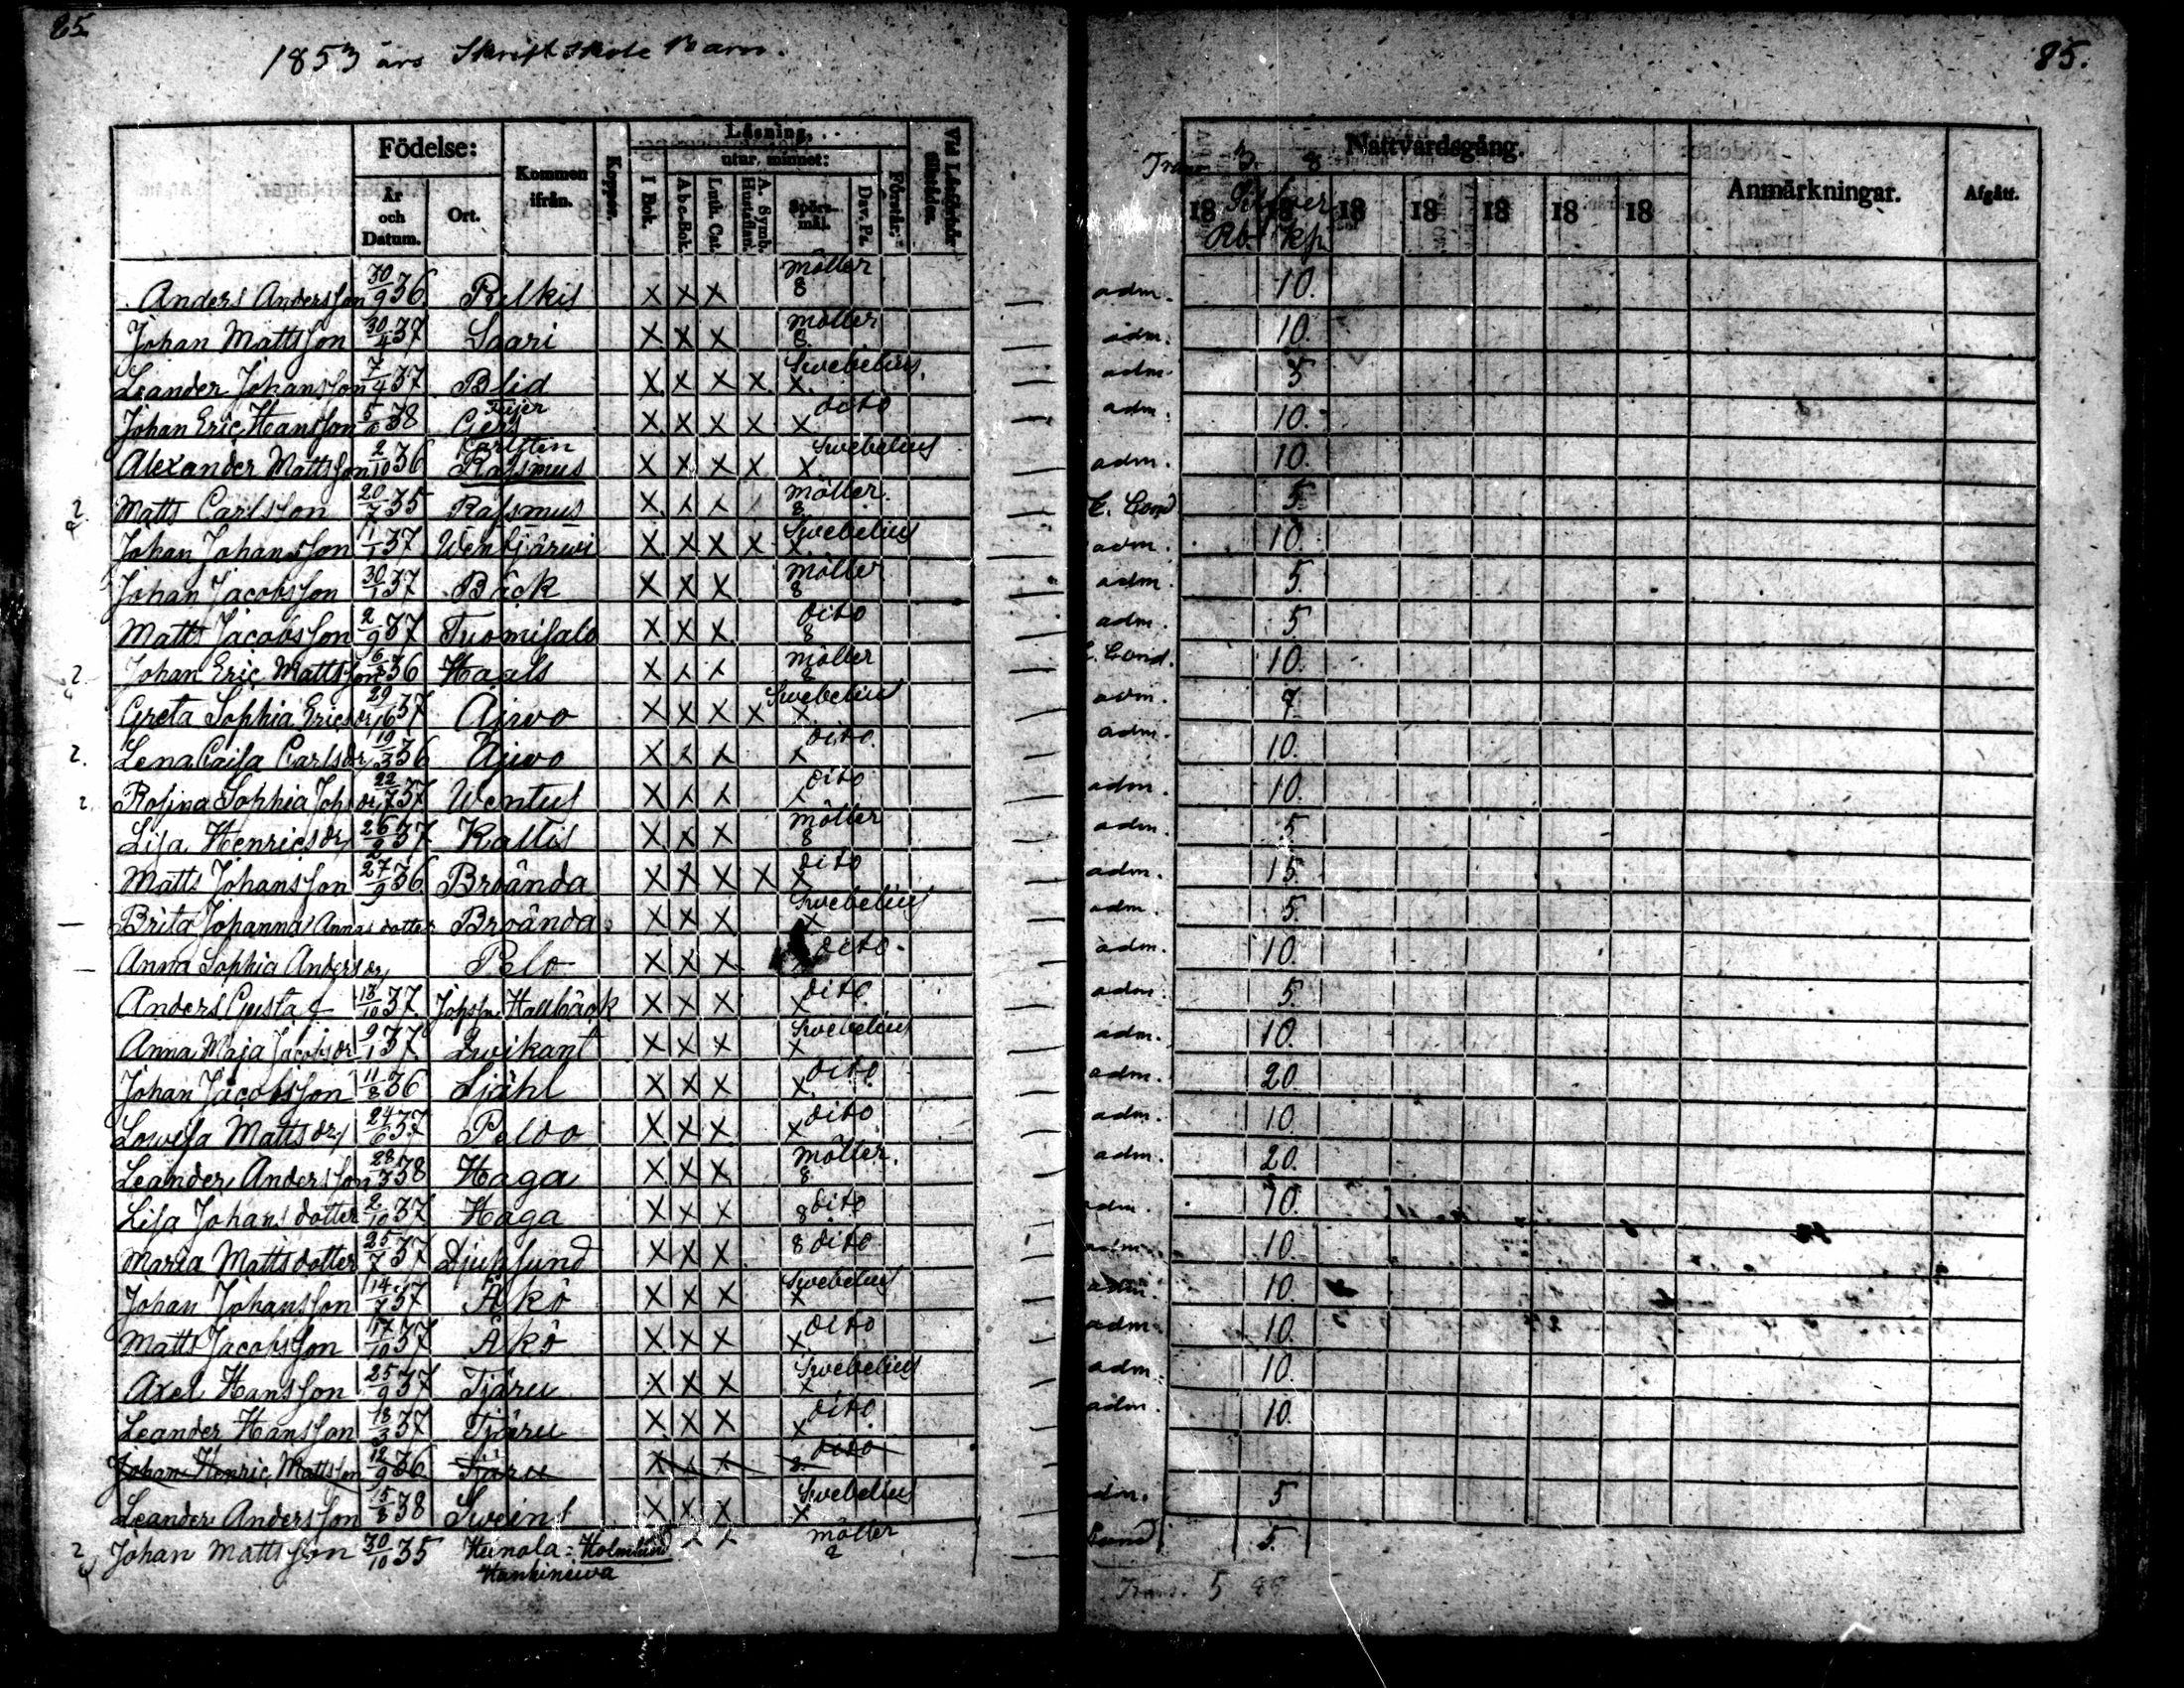 85.
1853 års Skriftskole Barn.
Födelse:
År och Datum.
Ort.
Kommen ifrån.
Koppor.
Läsning,
utur, minnet:
I Bok.
A b c-Bok.
Luth. Cat.
A. Symb. Hustaflan.
Spörsmål.
Dav. Ps.
Förstår:
Anders Andersson 30/9 36. Pelkis x x x Möller 8
Johan Mattsson 30/4 37 Saari x x x Möller 8.
Leander Johansson 7/4 37 Blid x x x x x Swebelius.
Johan Eric Hansson 38 Gers x x x x x dito
Alexander Mattsson 2/10 36 Rassmus x x x x x Swebelius
2 Matts Carlsson 20/7 35 Rassmus x x x Möller. 8
Johan Johansson 1/1 37 Wentjärwi x x x x x Swebelius
Johan Jacobsson 30/1 37 Bäck x x x Möller 8
Matts Jacobsson 2/9 37 Tuomisalo x x x dito 8
2 Johan Eric Mattsson 36 Haals x x x Möller 8
Greta Sophia Ericsdr 29/6 37 Äjwo x x x x x Swebelius
2. Lena Caisa Carlsdr 19/3 36 Äjwo x x x x dito
2 Rosina Sophia Johsdr 22/7 37 Wentus x x x x dito
Lisa Henricsdr 26/9 37 Kaltis x x x Möller 8
Matts Johansson 27/9 36. Broända x x x x x dito
Brita Johanna Annas dotter Broända x x x x Swebelius
Anna Sophia Andersdr Pelo x x x dito
Anders Gustaf 13/10 37 Johsson Hallbäck x x x x dito
Anna Maja Jacobsdr 9/1 37 Qwikant x x x x Swebelius
Johan Jacobsson 11/8 36 Sjähl x x x x dito
Lowisa Mattsdr 24/6 37 Peldo x x x x dito
Leander Andersson 28/3 38 Haga x x x Möller. 8
Lisa Johans dotter 2/10 37 Haga x x x 8 dito
Maria Matts dotter 25/7 37 Djupsund x x x 8 dito
Johan Johansson 14/7 37 Åkö x x x x Swebelius
Matts Jacobsson 17/10 37 Åkö x x x x dito
Axel Hansson 25/9 37 Tjäru x x x x Swebelius
Leander Hansson 18/3 37 Tjäru x x x x dito
Johan Henric Mattsson 12/9 36 Tjäru x x x 8 dito
Leander Andersson 15/8 38 Sweins x x x x Swebelius
2 Johan Mattsson 30/10 35 Heinola = Holmlund x x Möller 2
Hankinewa
85.
Nattvardsgång.
Anmärkningar.
Afgått.
18 18 18 18 18 18 18
Silfver
Rb. kp.
adm. 10.
adm. 10.
adm. 5
adm. 10.
adm. 10.
C. Cond 5
adm. 10.
adm. 5.
adm. 5
C. Cond. 10.
adm. 7
adm. 10.
adm. 10.
adm. 5
adm. 15.
adm. 5.
adm. 10.
adm. 5.
adm. 10.
adm. 20
adm. 10.
adm. 20.
adm. 10.
adm. 10.
adm. 10.
adm. 10.
adm. 10.
adm. 10.
adm. 5
Cond 5.
Trans. 5